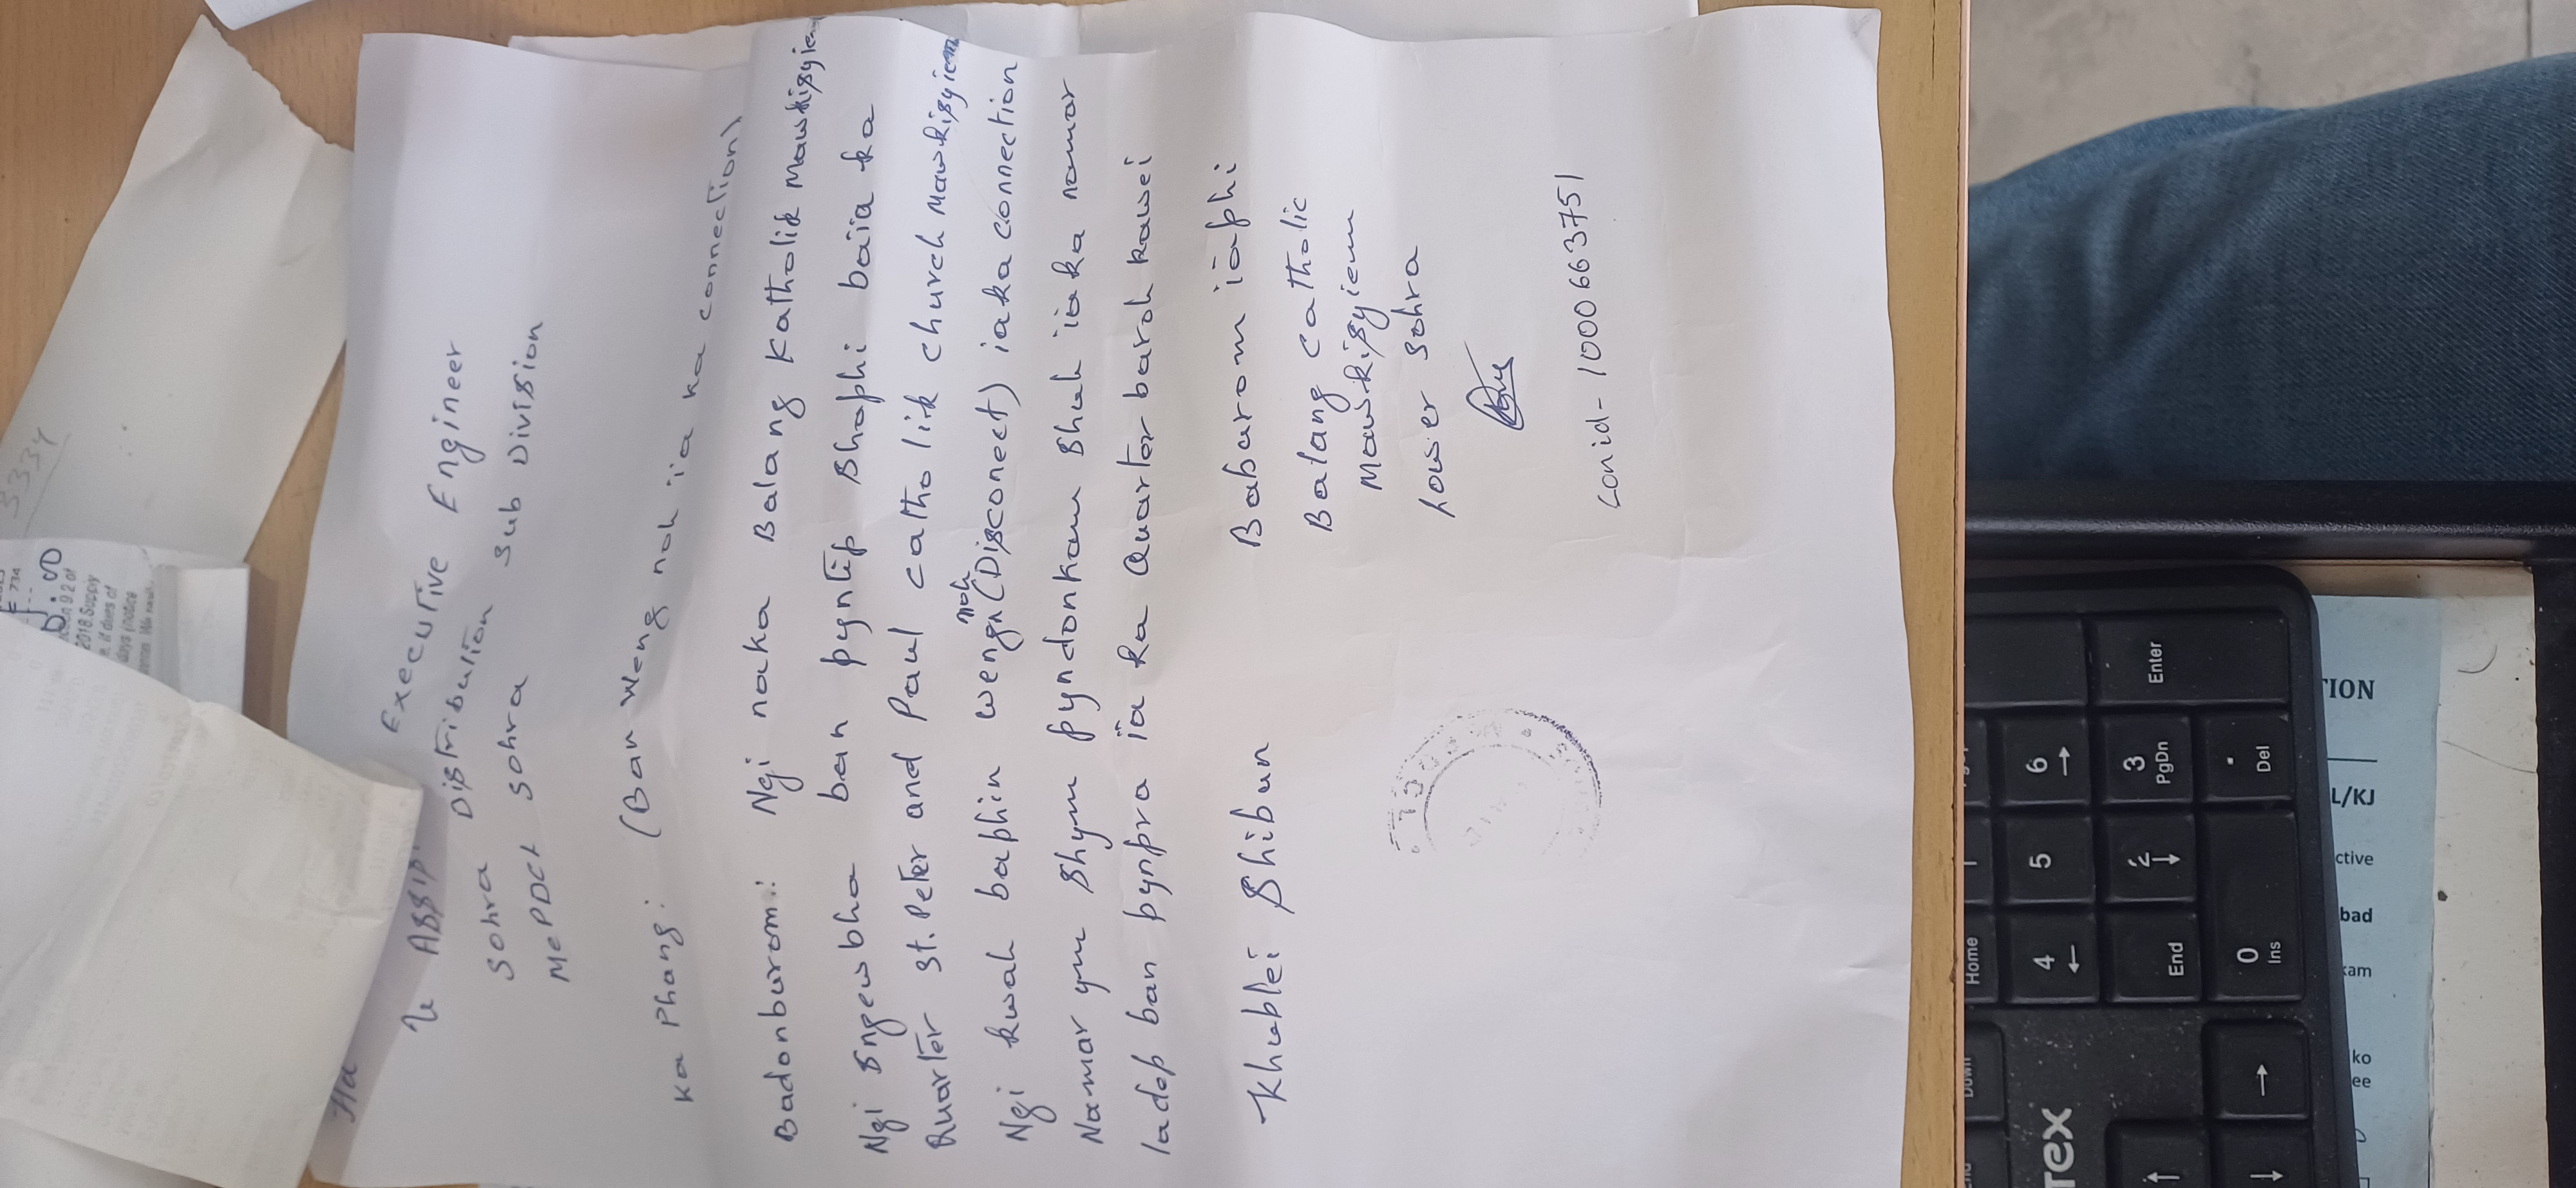 Ha
U Assis Executive Engineer
Sohra Distribution Sub Division
MePDCL Sohra
Ka Phang: (Ban Weng noh ia ka connection)
Badonburom: Ngi naka Balang Katholik Mawkisyiem
Ngi sngewbha ban pyntip shaphi baiia ka
Quarter St. Peter and Paul catholik church Mawkisyiem
Ngi kwah baphin wengn noh (Disconect) iaka connection
Namar ym shym pyndonkam shuh iaka namar
ladep ban pynpra ia ka Quarter baroh kawei
Khublei Shibun
Baburom iaphi
Balang catholic
Mawkisyiem
Lower Sohra
Conid- 1000663751
3334
= 734
D.S
2018.Supply
if dues of
days (notice
Enter
6
5
4
Home
3
PgDn
2
End
.
Del
0
Ins
TEX
TION
L/KJ
ctive
bad
kam
ko
ee